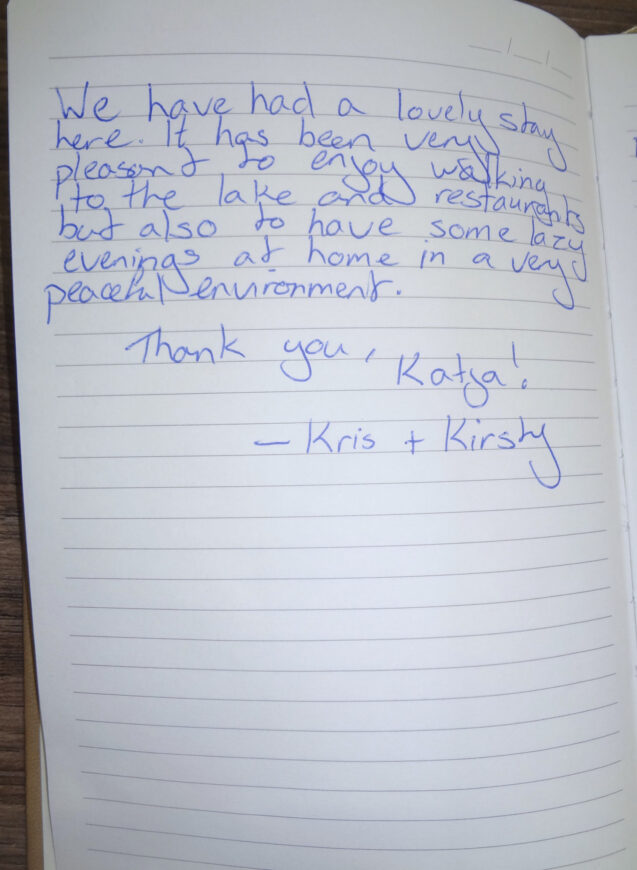 We have had a lovely stay
here. It has been very
pleasant to enjoy walking
to the lake and restaurants
but also to have some lazy
evenings at home in a very
peaceful environment.
Thank you, Katya!
— Kris + Kirsty